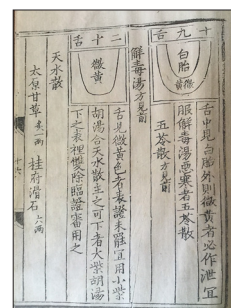 十九舌
白胎
微黃
舌中見白胎外則微黃者必作泄宜
服解毒湯惡寒者五苓散
五苓散方見前
解毒湯方見前
二十舌
微黃
舌見微黃色者表證未罷宜用小柴
胡湯合天水散主之可下者大柴胡湯
下之表裡雙除臨證審用之
天水散
太原甘草炙一兩 桂府滑石六兩